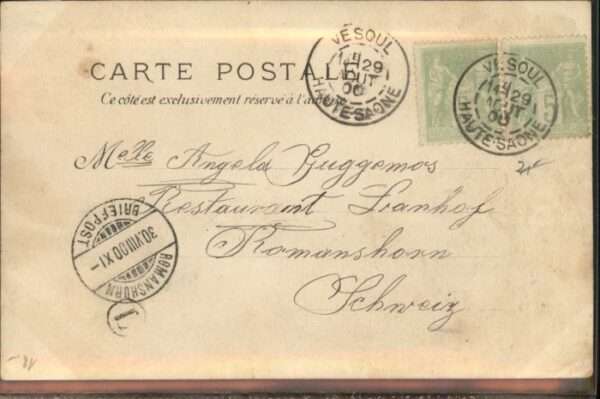 CARTE POSTALE
Ce côté est exclusivement réservé à l'ad
VESOUL
29
AOUT
00
HAUTE-SAONE
VESOUL
29
AOUT
00
HAUTE-SAONE
Melle Angela Guggemos
Restaurant
Romanshorn
Schweiz
BRIEFPOST
30.VIII.00.XI-
ROMANSHORN